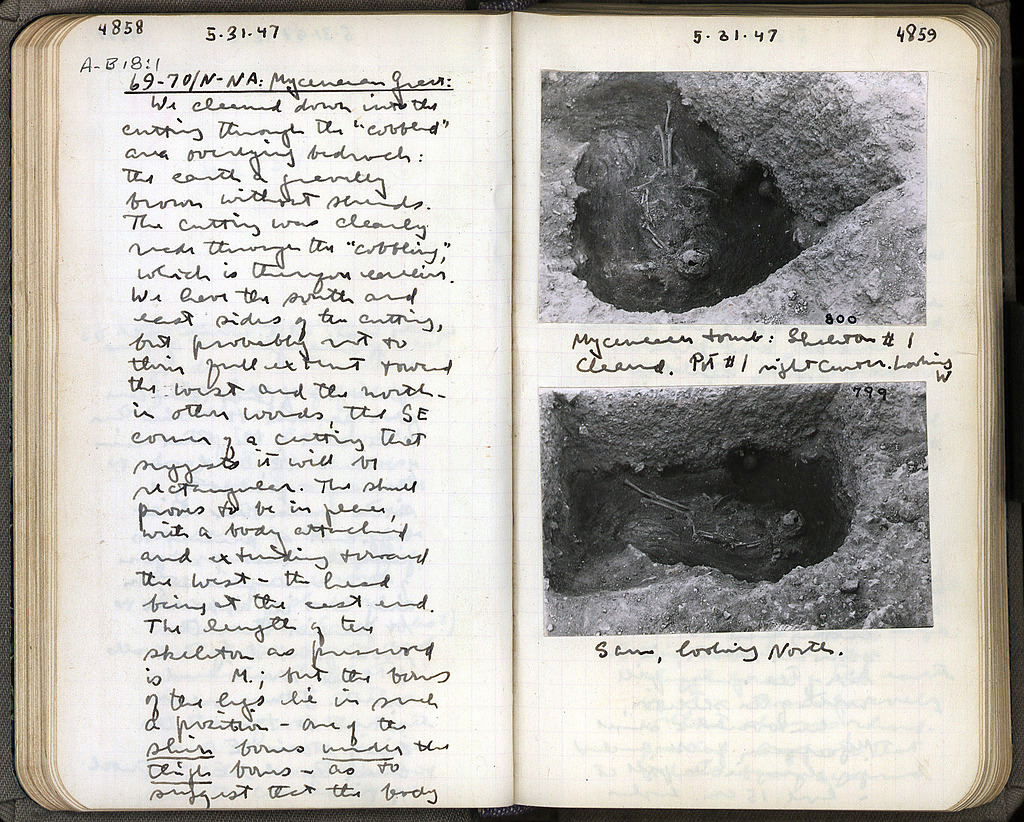 4858
5·31·47
A-B 18:1
69-70/N-NA: Mycenaean Grave:
We cleaned down into the
cutting through the "cobbled"
area overlying bedrock:
the earth a gravelly
brown without sherds.
The cutting was clearly
made through the "cobbling,"
which is therefore earlier.
We have the south and
east sides of the cutting,
but probably not to
their full extent toward
the west and the north -
in other words, the SE
corner of a cutting that
suggests it will be
rectangular. The skull
proves to be in place,
with a body attached
and extending toward
the west - the head
being at the east end.
The length of the
skeleton as preserved
is M.; but the bones
of the legs lie in such
a position - one of the
shin bones under the
thigh bones - as to
suggest that the body
5·31·47
4859
800
Mycenaean tomb: Skeleton #1
Cleaned. Pot #1 right center. Looking
W
799
Same, looking North.